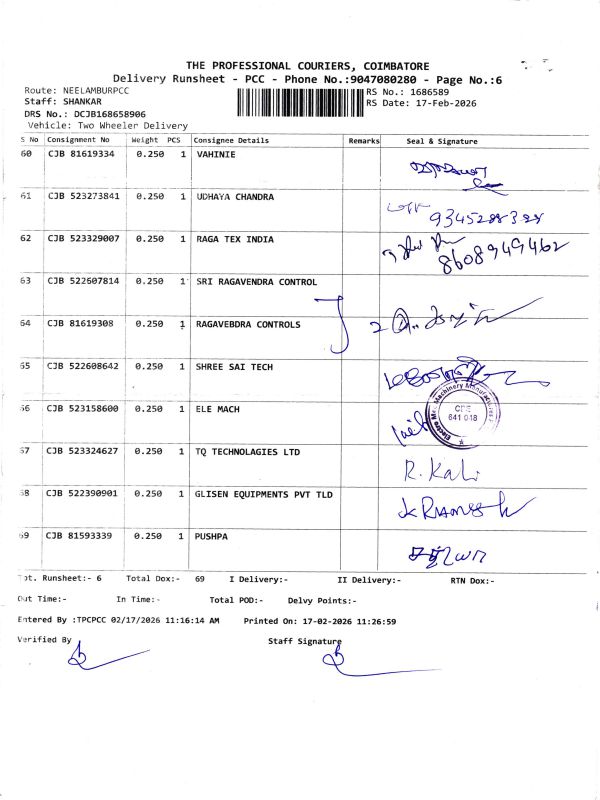 THE PROFESSIONAL COURIERS, COIMBATORE
Delivery Runsheet - PCC - Phone No.:9047080280 - Page No.:6
Route: NEELAMBURPCC
RS No.: 1686589
Staff: SHANKAR
RS Date: 17-Feb-2026
DRS No.: DCJB168658906
Vehicle: Two Wheeler Delivery
S No Consignment No Weight PCS Consignee Details Remarks Seal & Signature
60 CJB 81619334 0.250 1 VAHINIE
61 CJB 523273841 0.250 1 UDHAYA CHANDRA
9345288328
62 CJB 523329007 0.250 1 RAGA TEX INDIA
8608949462
63 CJB 522607814 0.250 1 SRI RAGAVENDRA CONTROL
64 CJB 81619308 0.250 1 RAGAVEBDRA CONTROLS
65 CJB 522608642 0.250 1 SHREE SAI TECH
66 CJB 523158600 0.250 1 ELE MACH
CPE
641 018
67 CJB 523324627 0.250 1 TQ TECHNOLAGIES LTD
R. Kali
68 CJB 522390901 0.250 1 GLISEN EQUIPMENTS PVT TLD
K Ramesh
69 CJB 81593339 0.250 1 PUSHPA
Tot. Runsheet:- 6 Total Dox:- 69 I Delivery:- II Delivery:- RTN Dox:-
Out Time:- In Time:- Total POD:- Delvy Points:-
Entered By :TPCPCC 02/17/2026 11:16:14 AM Printed On: 17-02-2026 11:26:59
Verified By Staff Signature